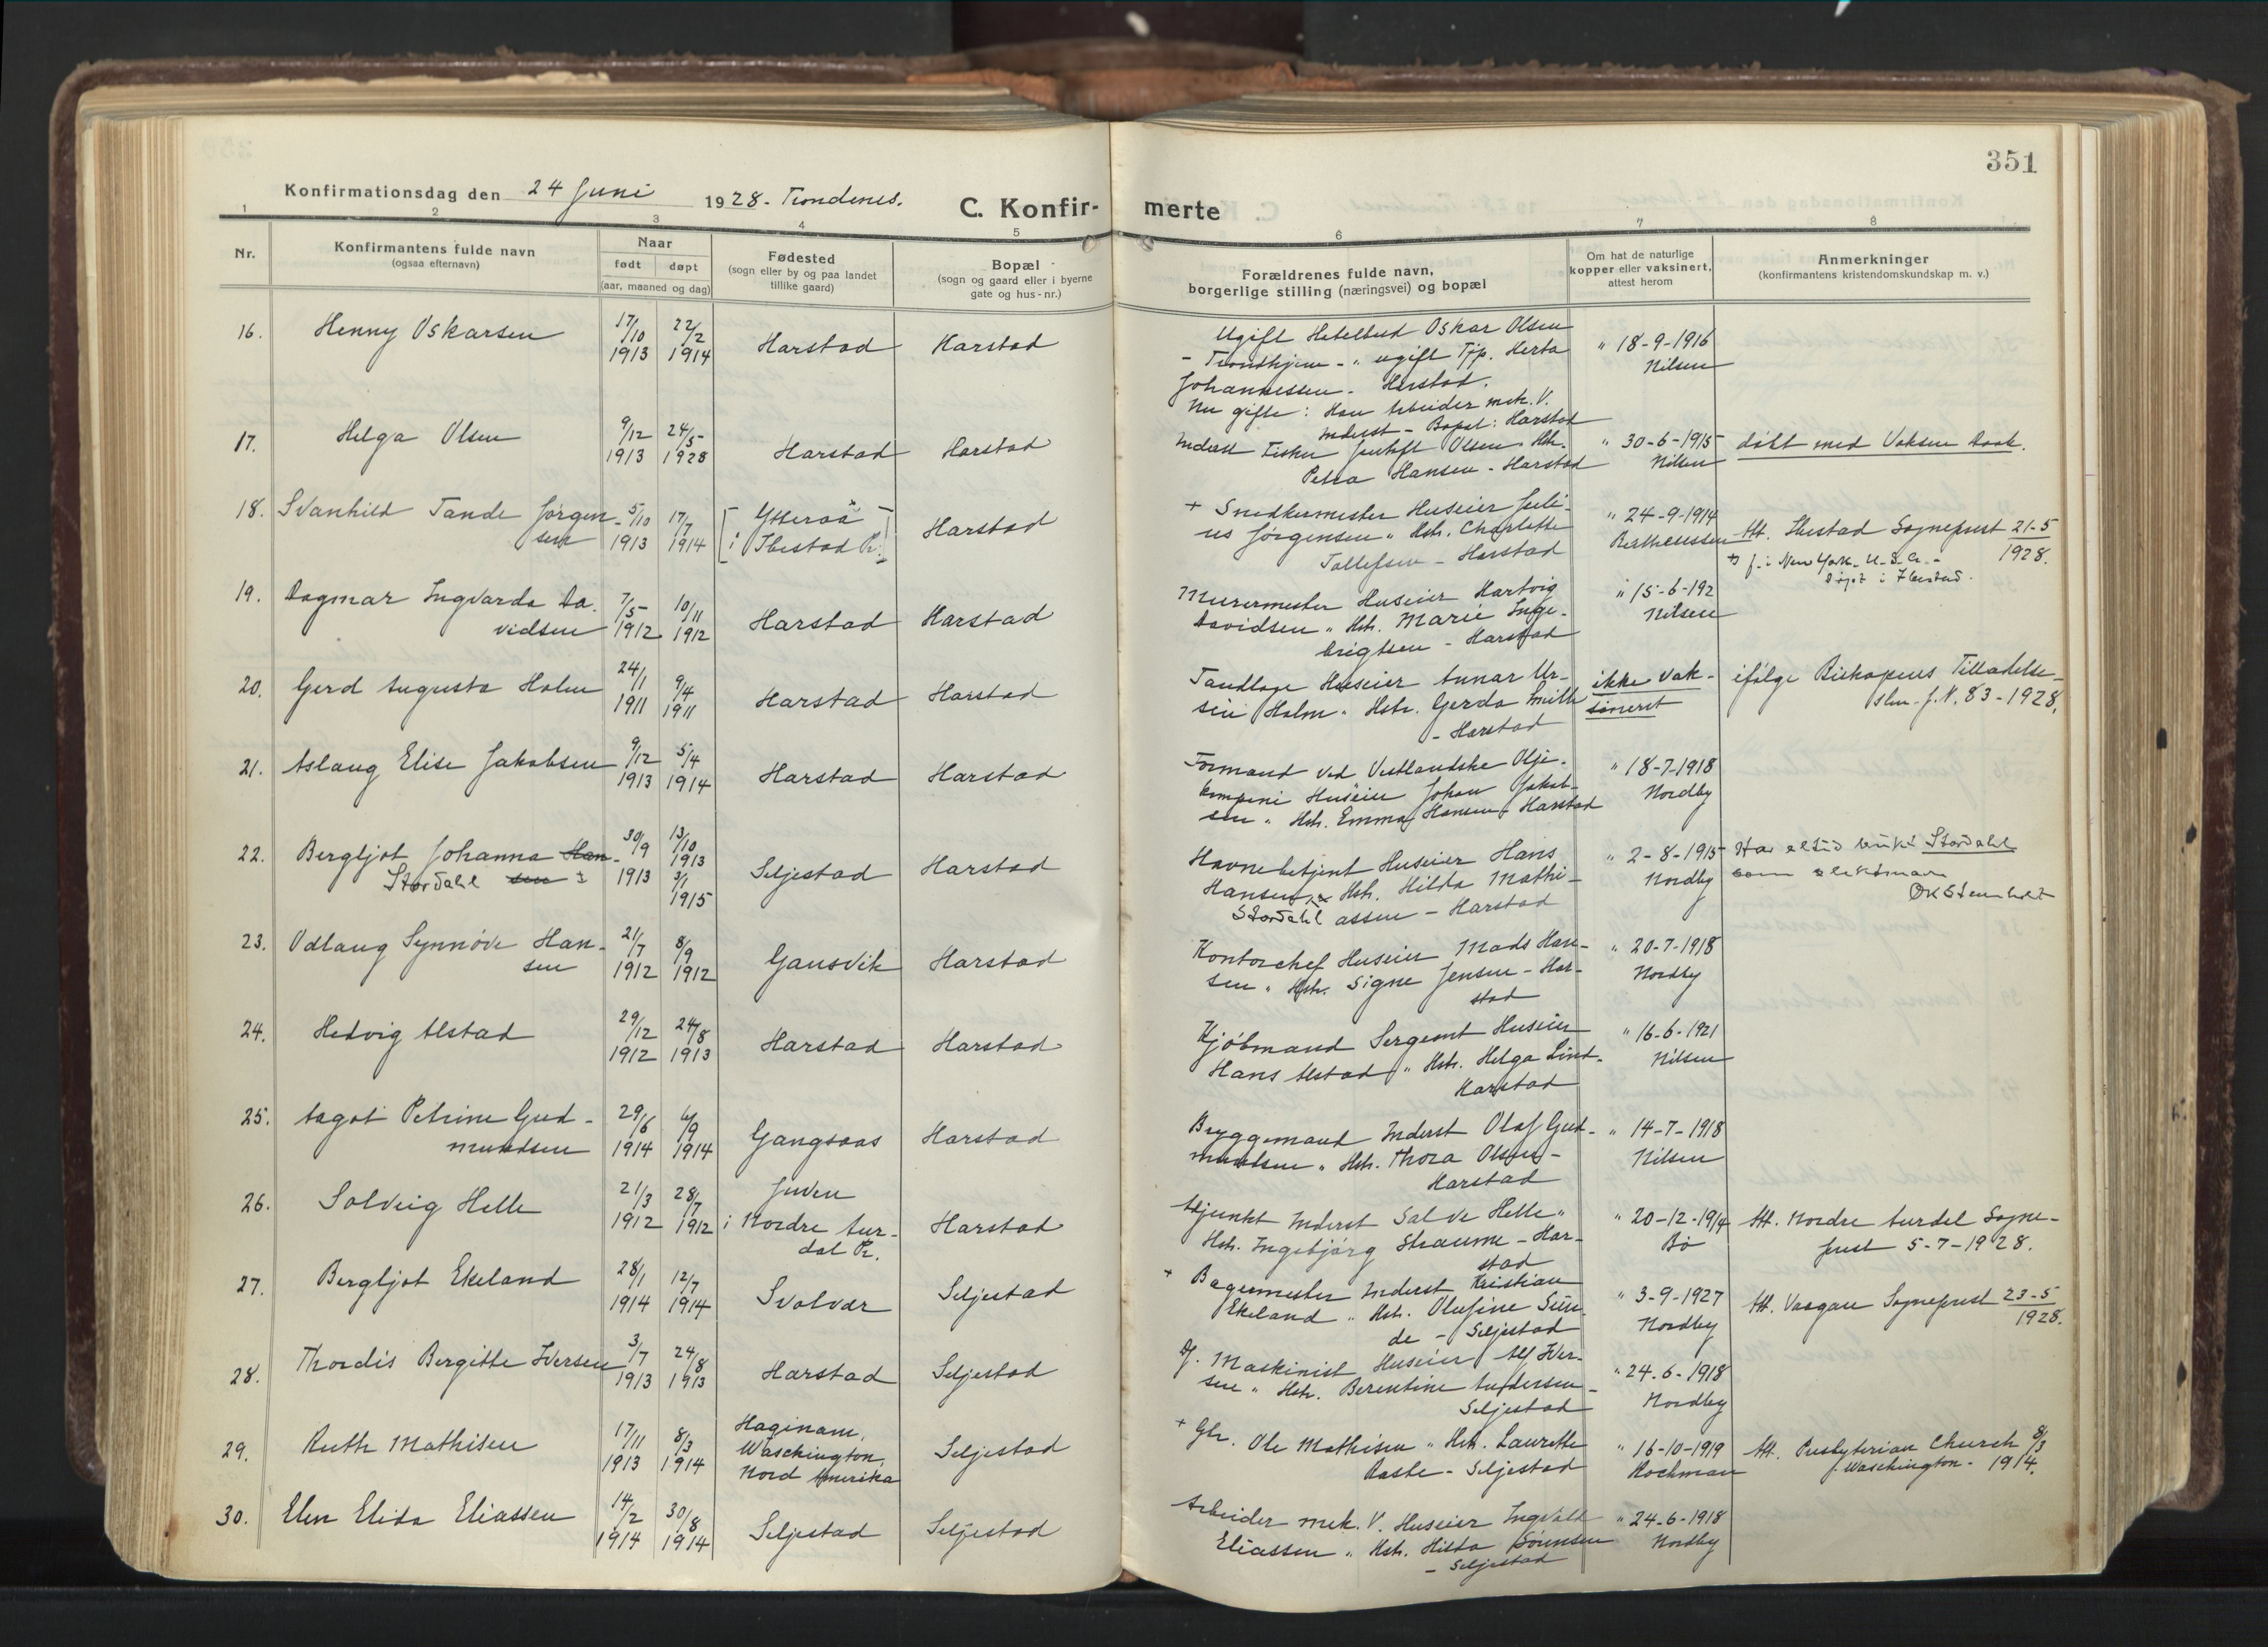 351
Konfirmationsdag den 24 Juni 1928. Trondenes.
C. Konfir-
merte
1 2 3 4 5 6 7 8
Nr.
Konfirmantens fulde navn
(ogsaa efternavn)
Naar
født døpt
(aar, maaned og dag)
Fødested
(sogn eller by og paa landet
tillike gaard)
Bopæl
(sogn og gaard eller i byerne
gate og hus-nr.)
Forældrenes fulde navn,
borgerlige stilling (næringsvei) og bopæl
Om hat de naturlige
kopper eller vaksinert,
attest herom
Anmerkninger
(konfirmantens kristendomskundskap m. v.)
16. Henny Oskarsen 17/10 1913 22/2 1914 Harstad Harstad
Ugift Hotelbud Oskar Olsen
- Trondhjem - " ugift Tjp. Herta
Johannessen - Harstad.
Nu gifte: Han Arbeider mek. V.
Inderst - Bopæl: Harstad
" 18-9-1916
Nilsen
17. Helga Olsen 9/12 1913 24/5 1928 Harstad Harstad
Inderst Fisker Olsen " Hstr.
Petra Hansen - Harstad
" 30-6-1915
Nilsen
døbt med Voksen Daab.
18. Svanhild Tande Jørgen-
sen
5/10 1913 17/7 1914
[Ytteraa
i Ibestad Pr.]
Harstad
+ Snedkermester Huseier Juli-
us Jørgensen " Hstr. Charlotte
Tollefsen - Harstad
" 24-9-1914
Bertheussen
Att. Ibestad Sogneprest 21-5
1928.
f. i New York. U.S.A. -
Døpt i Ibestad.
19. Dagmar Ingvarda Da-
vidsen
7/5 1912 10/11 1912 Harstad Harstad
Murermester Huseier Hartvig
Davidsen " Hstr. Marie Inge-
brigtsen - Harstad
" 15-6-192
Nilsen
20. Gerd Augusta Holm 24/1 1911 9/4 1911 Harstad Harstad
Tandlæge Huseier Annar Ur-
sin Holm " Hstr. Gerda Smith
- Harstad
ikke vak-
sineret
ifølge Biskopens Tilladelse
J.N. 83-1928.
21. Aslaug Elise Jakobsen 9/12 1913 5/4 1914 Harstad Harstad
Formand ved Vestlandske Olje-
kompani Huseier Johan Jakob-
sen " Hstr. Emma Hansen - Harstad
" 18-7-1918
Nordby
22. Bergljot Johanna Han-
Stordahl sen
30/9 1913 13/10 1913 3/1 1915 Seljestad Harstad
Havnebetjent Huseier Hans
Hansen " Hstr. Hilda Mathi-
Stordahl assen - Harstad
" 2-8-1915
Nordby
Har altid brukt Stordahl
som slektsnavn
OK Stenholt
23. Odlaug Synnøve Han-
sen
21/7 1912 8/9 1912 Gansvik Harstad
Kontorchef Huseier Mads Han-
sen " Hstr. Signe Jensen - Har-
stad
" 20-7-1918
Nordby
24. Hedvig Alstad 29/12 1912 24/8 1913 Harstad Harstad
Kjøbmand Sergeant Huseier
Hans Alstad " Hstr. Helga Lind -
Harstad
" 16-6-1921
Nilsen
25. Aagot Petrine Gud-
mundsen
29/6 1914 6/9 1914 Gangsaas Harstad
Bryggemand Inderst Olaf Gud-
mundsen " Hstr. Thora Olsen -
Harstad
" 14-7-1918
Nilsen
26. Solveig Helle 21/3 1912 28/7 1912
i Nordre Aur-
dal Pr.
Harstad
Adjunkt Inderst Salve Helle "
Hstr. Ingebjørg Straume - Har-
stad
" 20-12-1914
Bø
Att. Nordre Aurdal Sogne-
prest 5-7-1928.
27. Bergljot Ekeland 28/1 1914 12/7 1914 Svolvær Seljestad
+ Bagermester Inderst Kristian
Ekeland " Hstr. Olufine Sun-
de - Seljestad
" 3-9-1927
Nordby
Att. Vaagan Sogneprest 23-5
1928.
28. Thordis Bergitte Iversen 3/7 1913 24/8 1913 Harstad Seljestad
Maskinist Huseier Alf Iver-
sen " Hstr. Berentine Andersen -
Seljestad
" 24-6-1918
Nordby
29. Ruth Mathisen 17/11 1913 8/3 1914
Waschington,
Nord Amerika
Seljestad
+ Gbr. Ole Mathisen " Hstr. Laurette
- Seljestad
" 16-10-1919
Rochman
Att. Presbyterian Church 8/3
Waschington - 1914.
30. Elen Elida Eliassen 14/2 1914 30/8 1914 Seljestad Seljestad
Arbeider mek. V. Huseier Ingvald
Eliassen " Hstr. Hilda Sørensen
- Seljestad
" 24-6-1918
Nordby